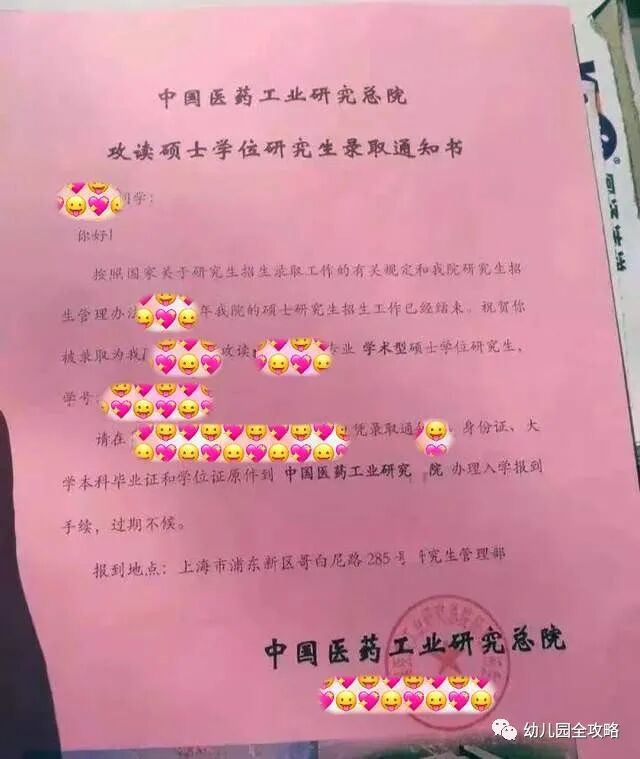 中国医药工业研究总院
攻读硕士学位研究生录取通知书
同学：
你好！
按照国家关于研究生招生录取工作的有关规定和我院研究生招
生管理办法 年我院的硕士研究生招生工作已经结束。祝贺你
被录取为我 攻读 专业 学术型硕士学位研究生，
学号：
请在 凭录取通 。身份证、大
学本科毕业证和学位证原件到 中国医药工业研究 院 办理入学报到
手续，过期不候。
报到地点：上海市浦东新区哥白尼路 285 号 研究生管理部
中国医药工业研究总院
幼儿园全攻略